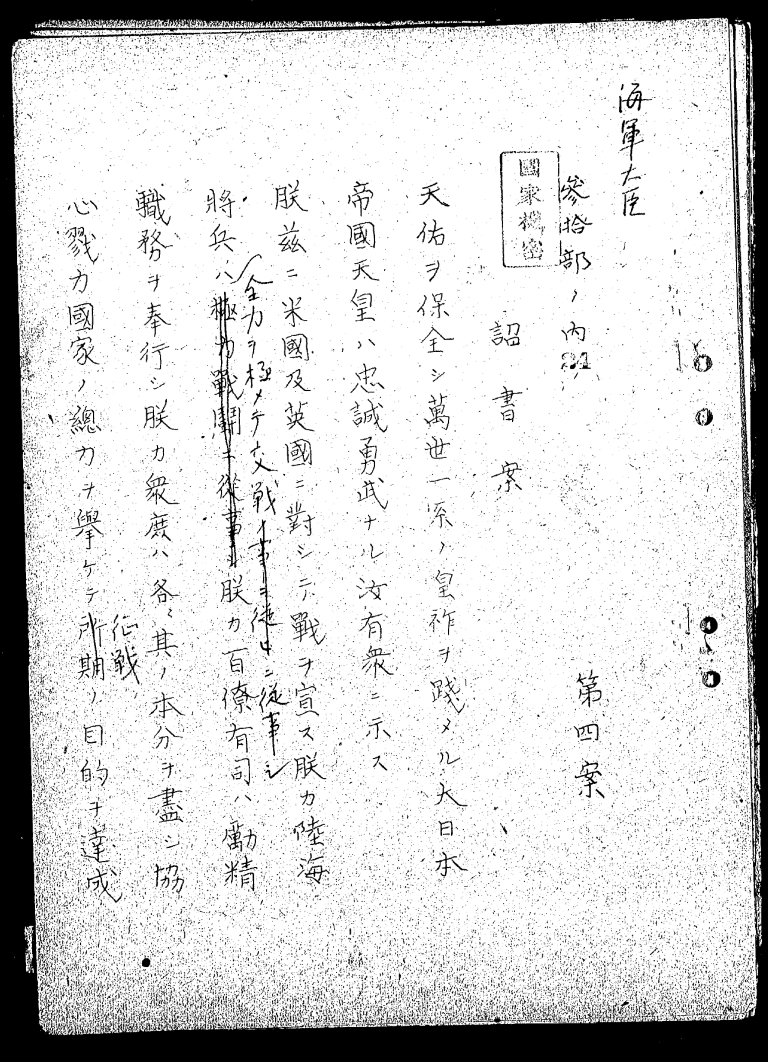 海軍大臣
參拾部ノ內24
國家機密
第四案
詔書案
天佑ヲ保全シ萬世一系ノ皇祚ヲ踐メル大日本
帝國天皇ハ忠誠勇武ナル汝有衆ニ示ス
朕茲ニ米國及英國ニ對シテ戰ヲ宣ス朕カ陸海
全力ヲ極メテ交戰ノ事ニ從ヒニ從事シ
將兵ハ極力戰鬪ニ從事シ朕カ百僚有司ハ勵精
職務ヲ奉行シ朕カ衆庶ハ各〻其ノ本分ヲ盡シ協
征戰
心戮力國家ノ總力ヲ擧ケテ所期ノ目的ヲ達成